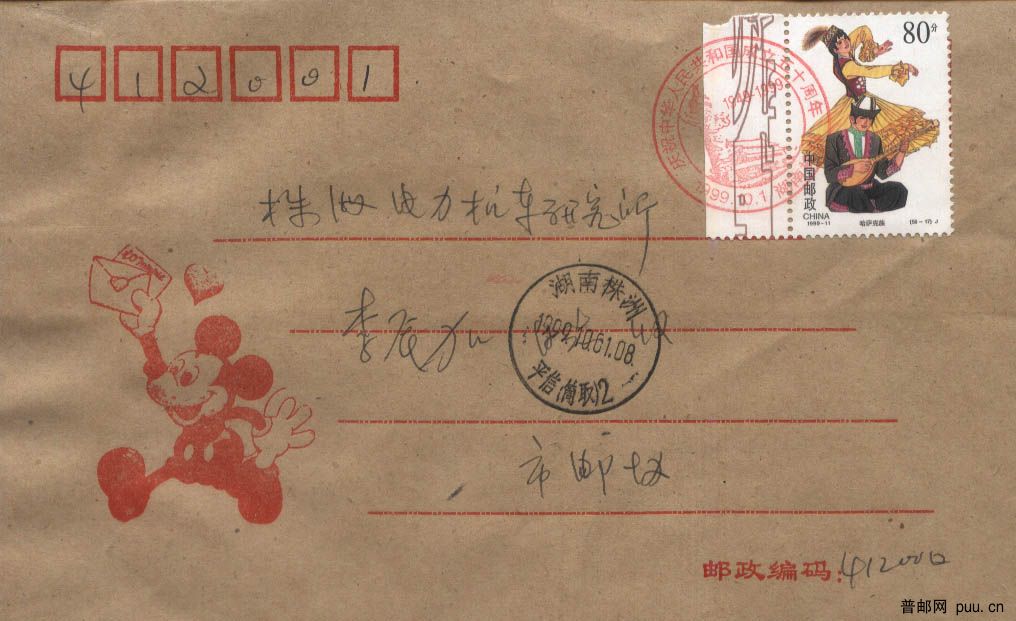 412001
80分
庆祝中华人民共和国成立五十周年
1949-1999
1999.10.1
中国邮政
CHINA
1999-11
哈萨克族
(56-17) J
株洲电力机车研究所
湖南株洲
李
平信(筒取)2
市邮
邮政编码:412000
普邮网 puu.cn